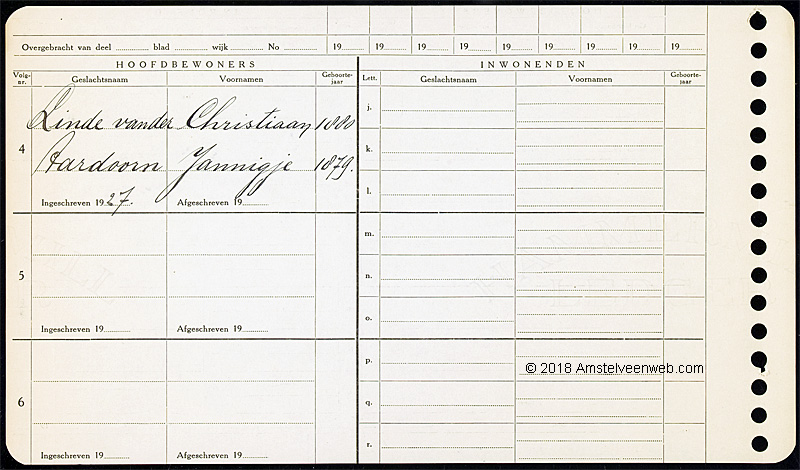 Overgebracht van deel ........ blad ........ wijk ........ No ........ 19.... 19.... 19.... 19.... 19.... 19.... 19.... 19.... 19....
HOOFDBEWONERS INWONENDEN
Volg-nr. Geslachtsnaam Voornamen Geboorte-jaar Lett. Geslachtsnaam Voornamen Geboorte-jaar
Linde vander Christiaan 1880 j.
4 k.
Aardoorn Jannigje 1879.
Ingeschreven 1927. Afgeschreven 19........ l.
m.
5 n.
Ingeschreven 19........ Afgeschreven 19........ o.
p.
© 2018 Amstelveenweb.com
6 q.
Ingeschreven 19........ Afgeschreven 19........ r.